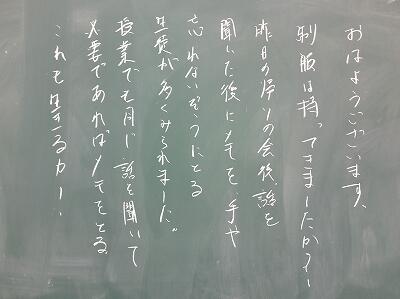 おはようございます。
制服は持ってきましたか？！
昨日の帰りの会後、話を
聞いた後にメモを、手や
忘れないようにとる
生徒が多くみられました。
授業でも同じ、話を聞いて
必要であればメモをとる。
これも生きる力！！